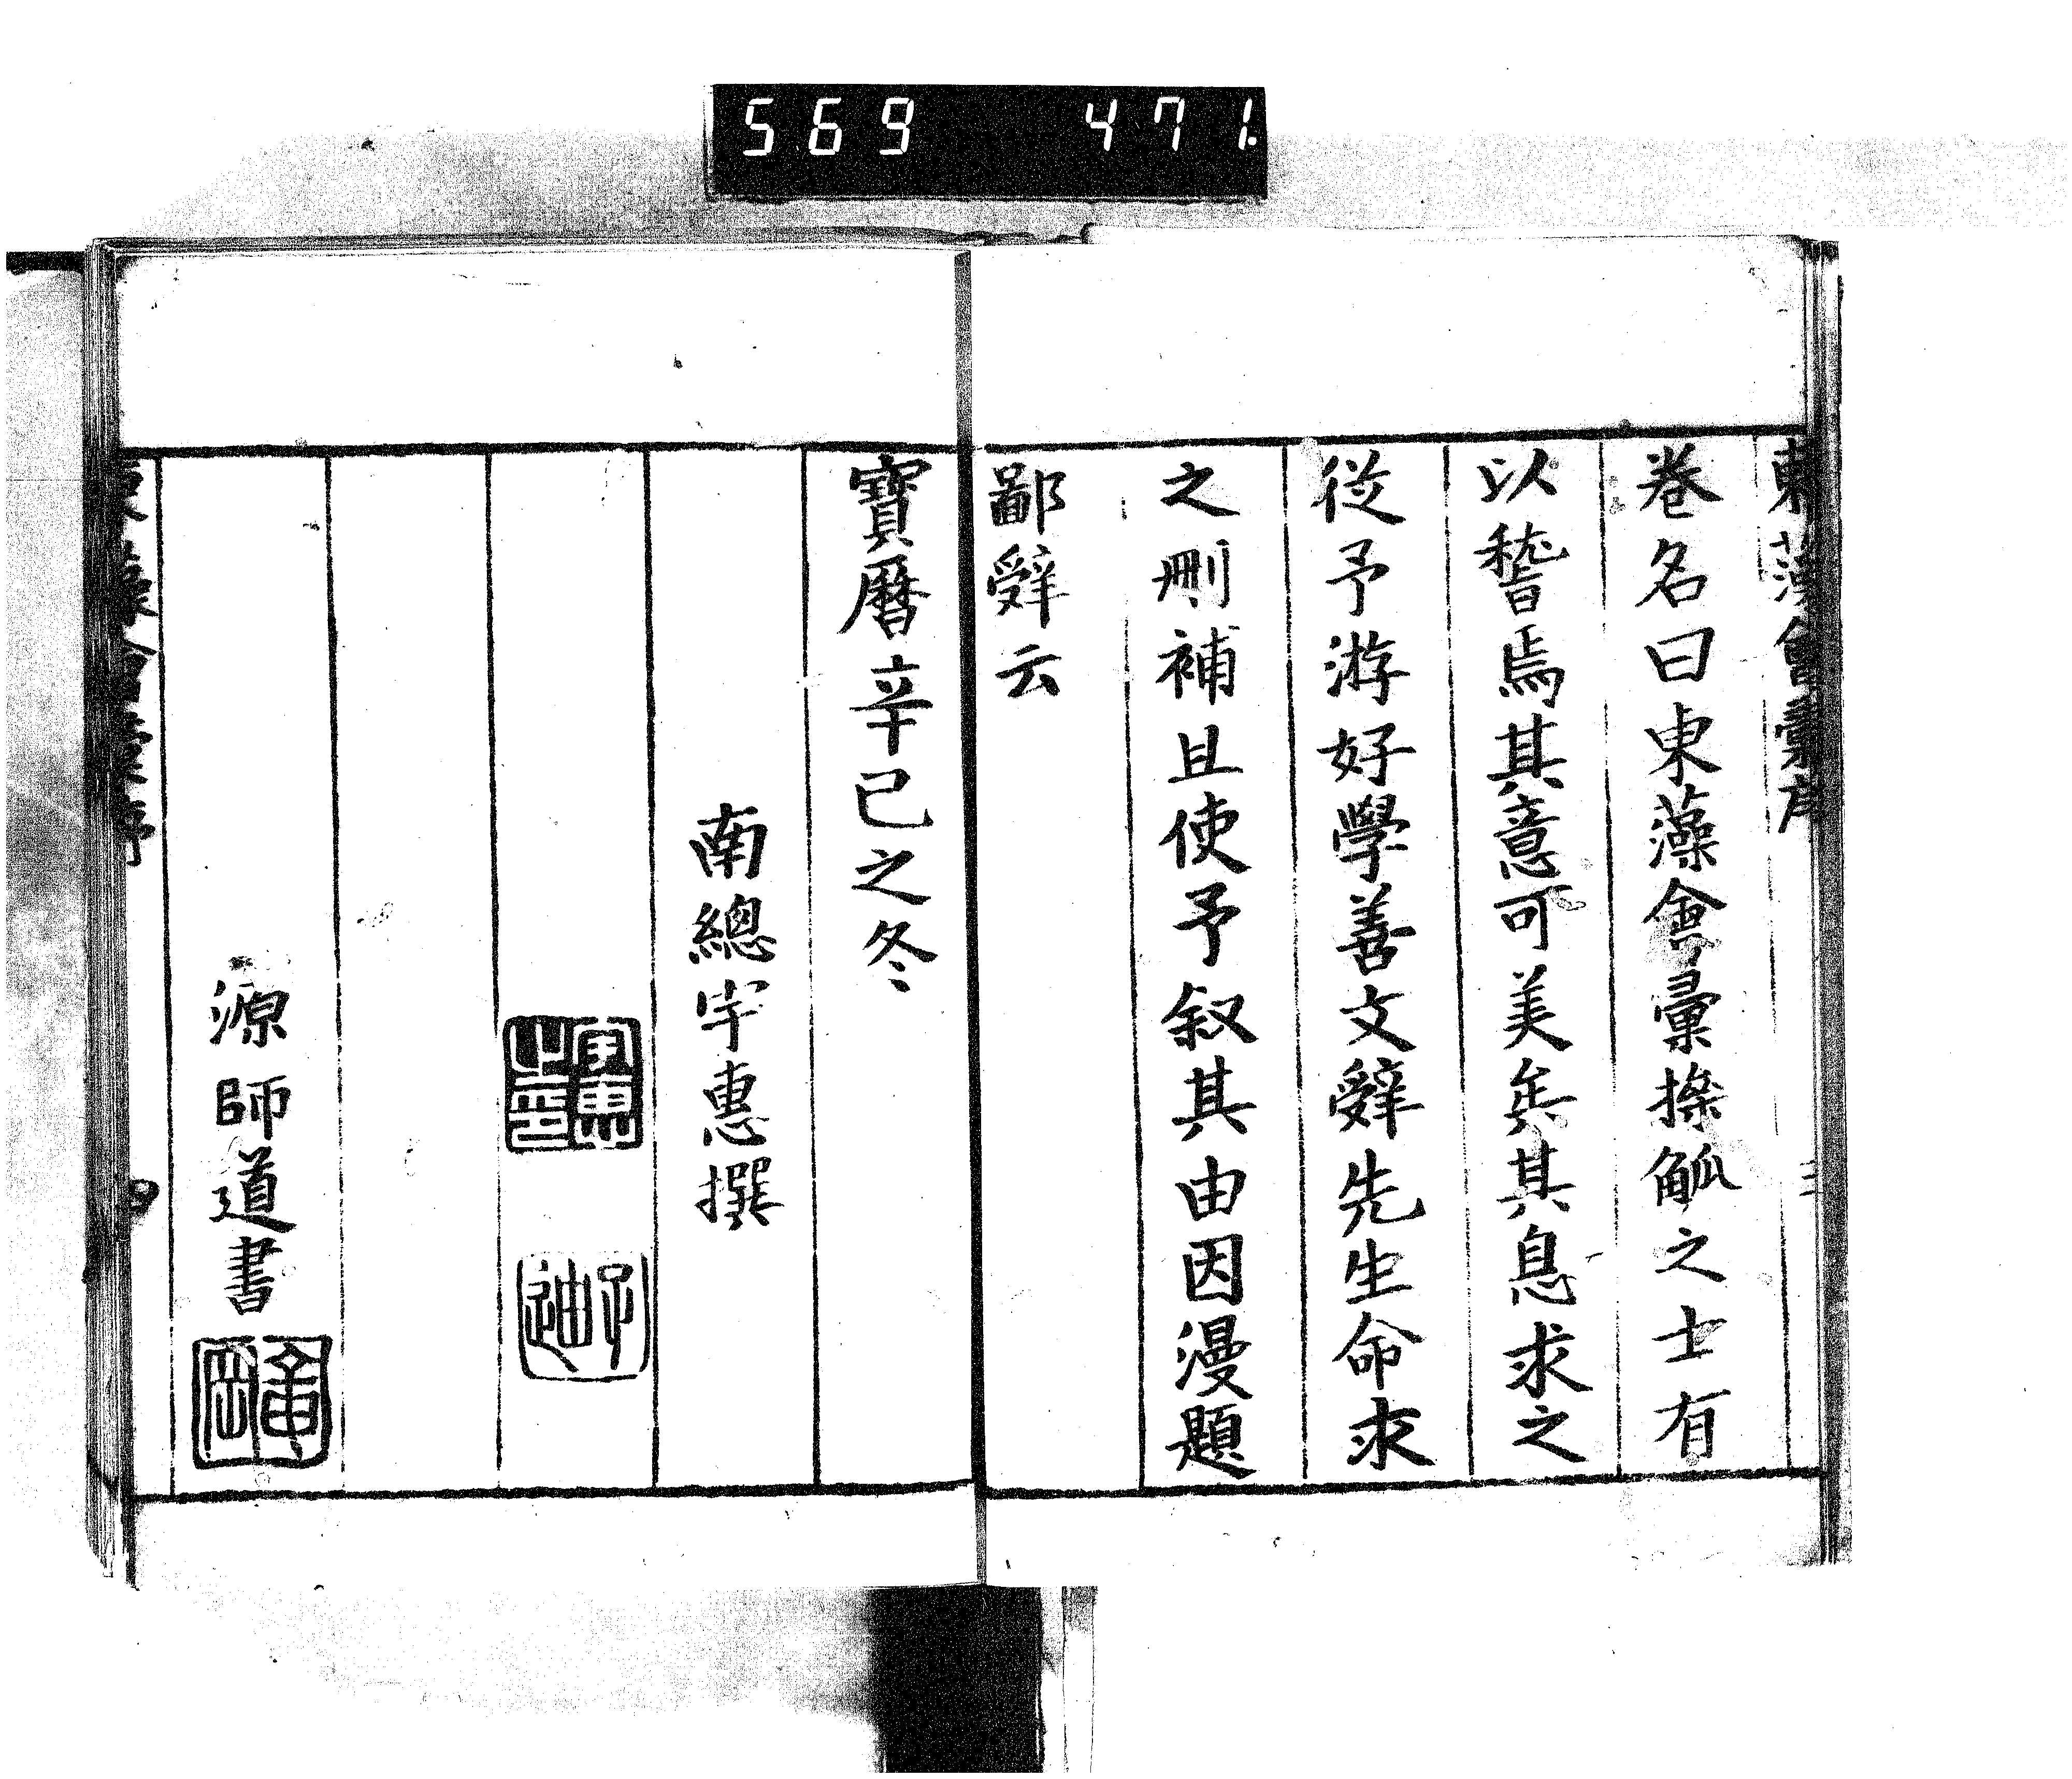 569 471.
東藻會彙序 三
卷名曰東藻會彙操觚之士有
以稽焉其意可美矣其息求之
從予游好學善文辭先生命求
之刪補且使予叙其由因漫題
鄙辭云
寶曆辛巳之冬
南總宇惠撰
宇惠之印
子迪
源師道書
東藻會彙序 四